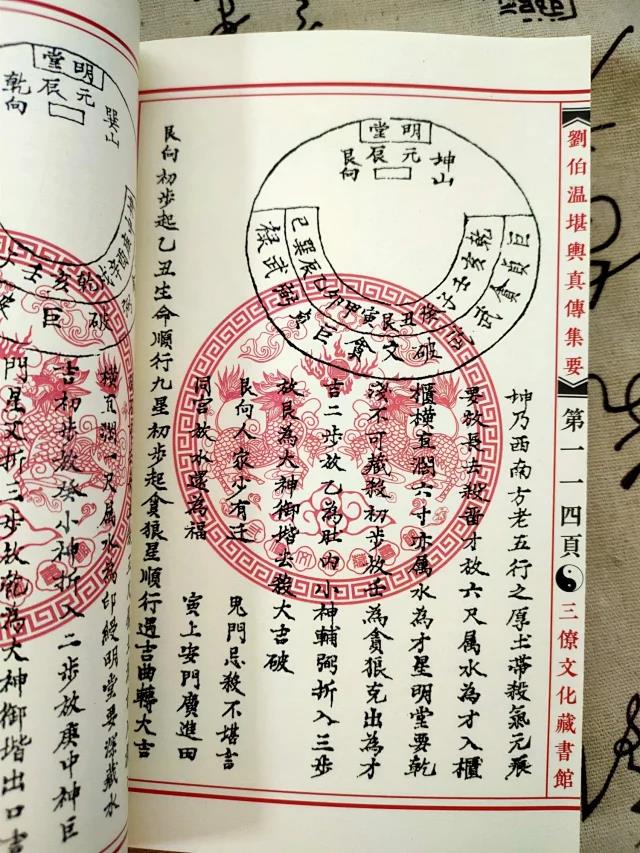 劉伯温堪輿真傳集要
第一一四頁
三僚文化藏書館
明堂
元辰
坤山
艮向
巨貪貞武
乾亥壬子
丑艮寅甲卯乙
辰巽巳
破文貪巨
武祿
坤乃西南方老五行之厚土帶殺氣元辰
要放長去殺晋才放六尺属水為才入櫃
櫃横宜濶六寸亦属水為才星明堂要乾
淺不可藏殺初步放壬為貪狼克出為才
吉二步放乙為肚内小神輔弼折入三步
放艮為大神御堦去殺大吉破
艮向人家少有迁 鬼門忌殺不堪言
洞宫放水還為福 寅上安門廣進田
艮向初步起乙丑生命順行九星初步起貪狼星順行遇吉曲轉大吉
明堂
元辰
巽山
乾向
破
巨
横宜濶一尺属水為印綬明堂要深藏水
吉初步放癸小神折入二步放庚中神巨
門星又折三步放乾為大神御堦出口吉